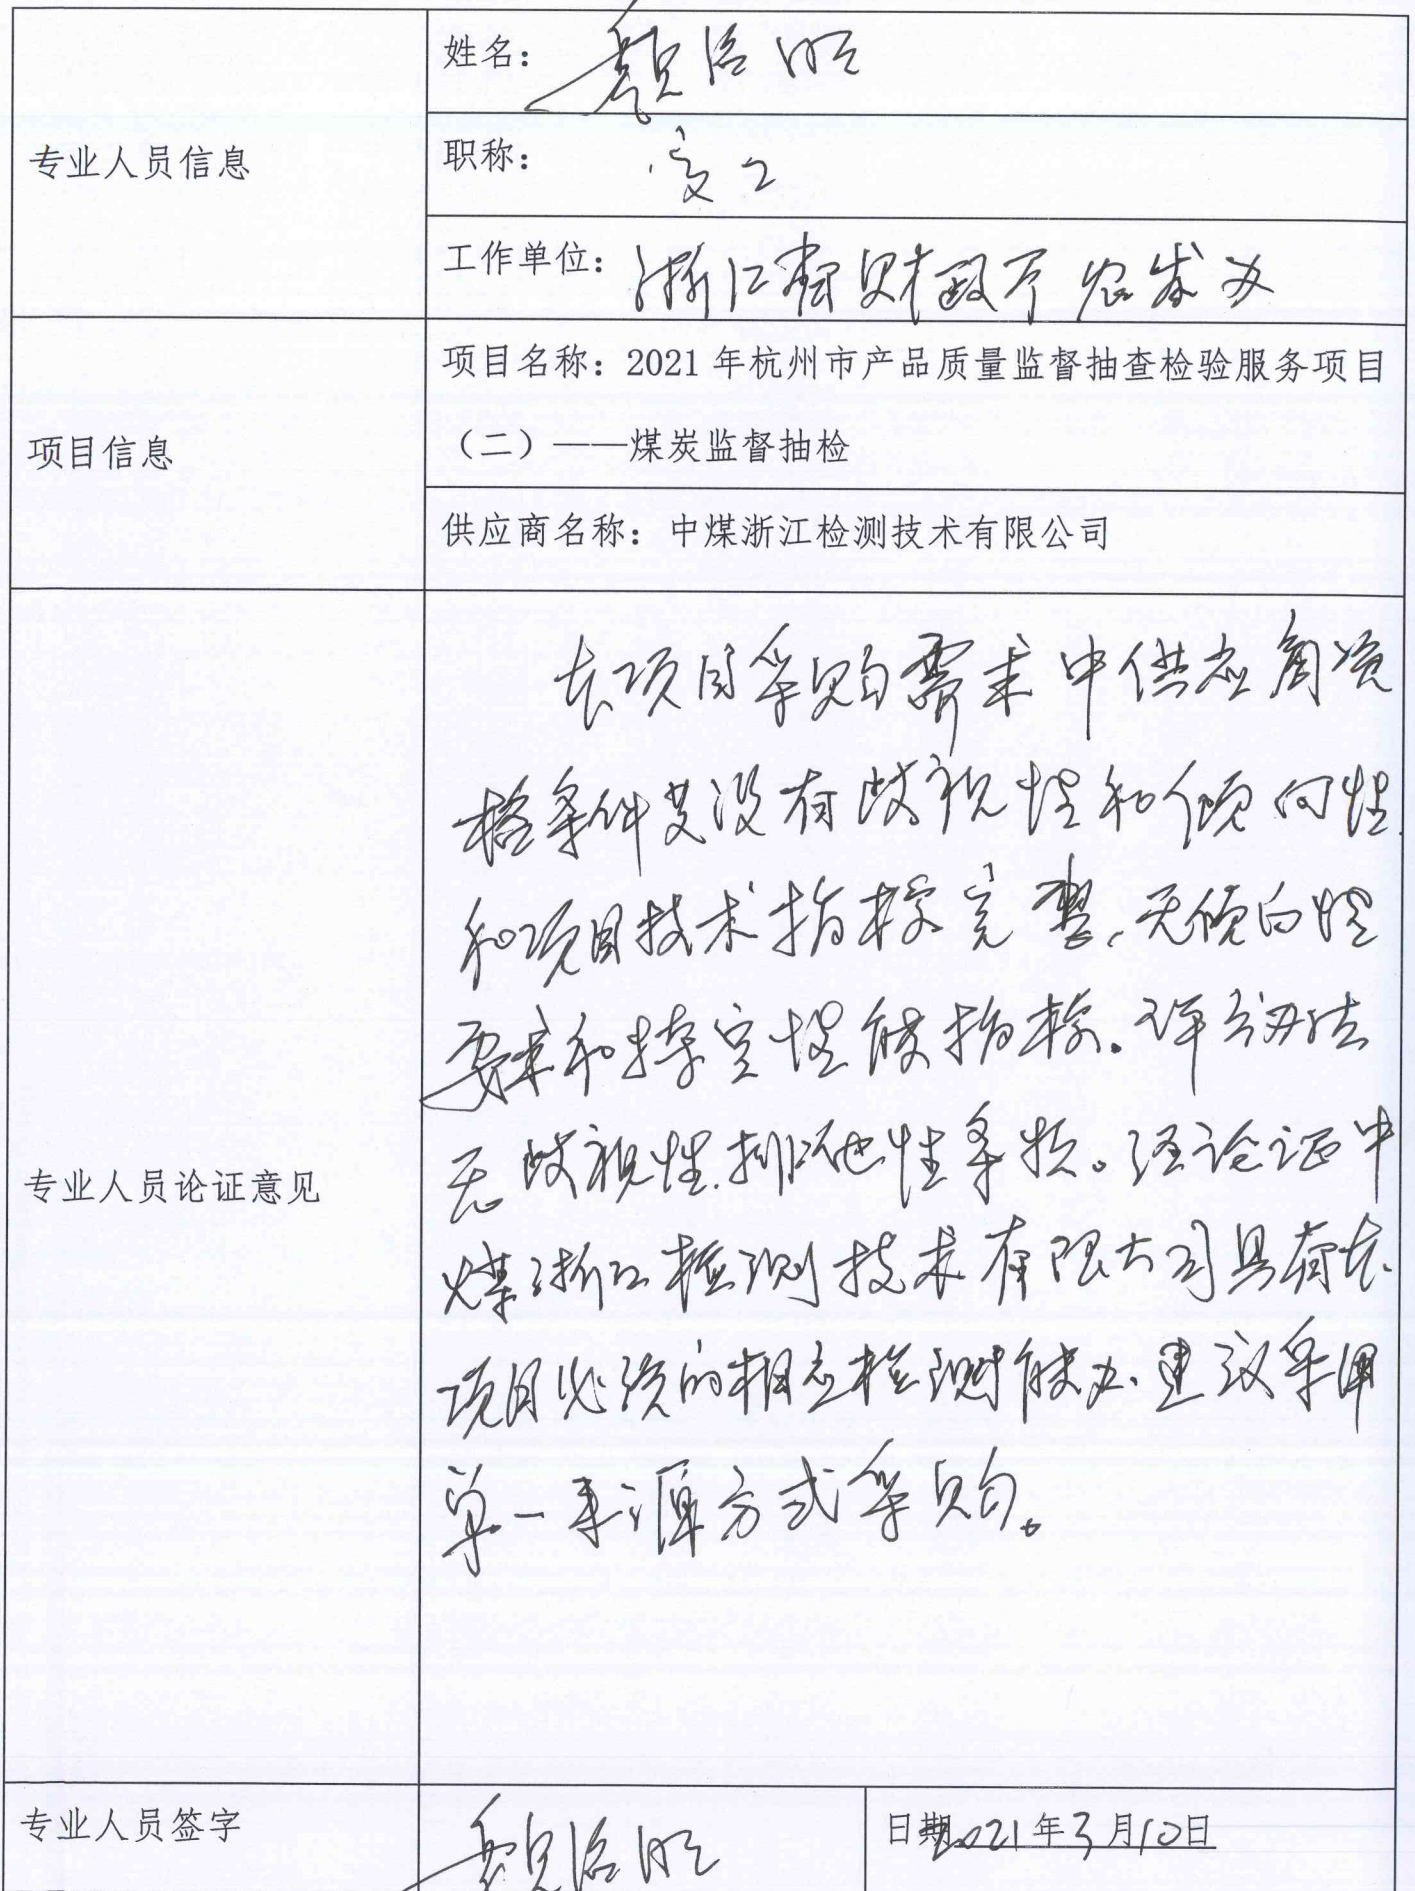 专业人员信息
姓名：
职称：高工
工作单位：浙江省财政厅农发办
项目信息
项目名称：2021年杭州市产品质量监督抽查检验服务项目
（二）——煤炭监督抽检
供应商名称：中煤浙江检测技术有限公司
专业人员论证意见
本项目采购需求中供应商资
格条件并没有歧视性和倾向性，
和项目技术指标完整，无倾向性
要求和特定性能指标。评分办法
无歧视性、排他性条款。经论证中
煤浙江检测技术有限公司具有本
项目必须的相应检测能力，建议采用
单一来源方式采购。
专业人员签字
日期2021年3月10日